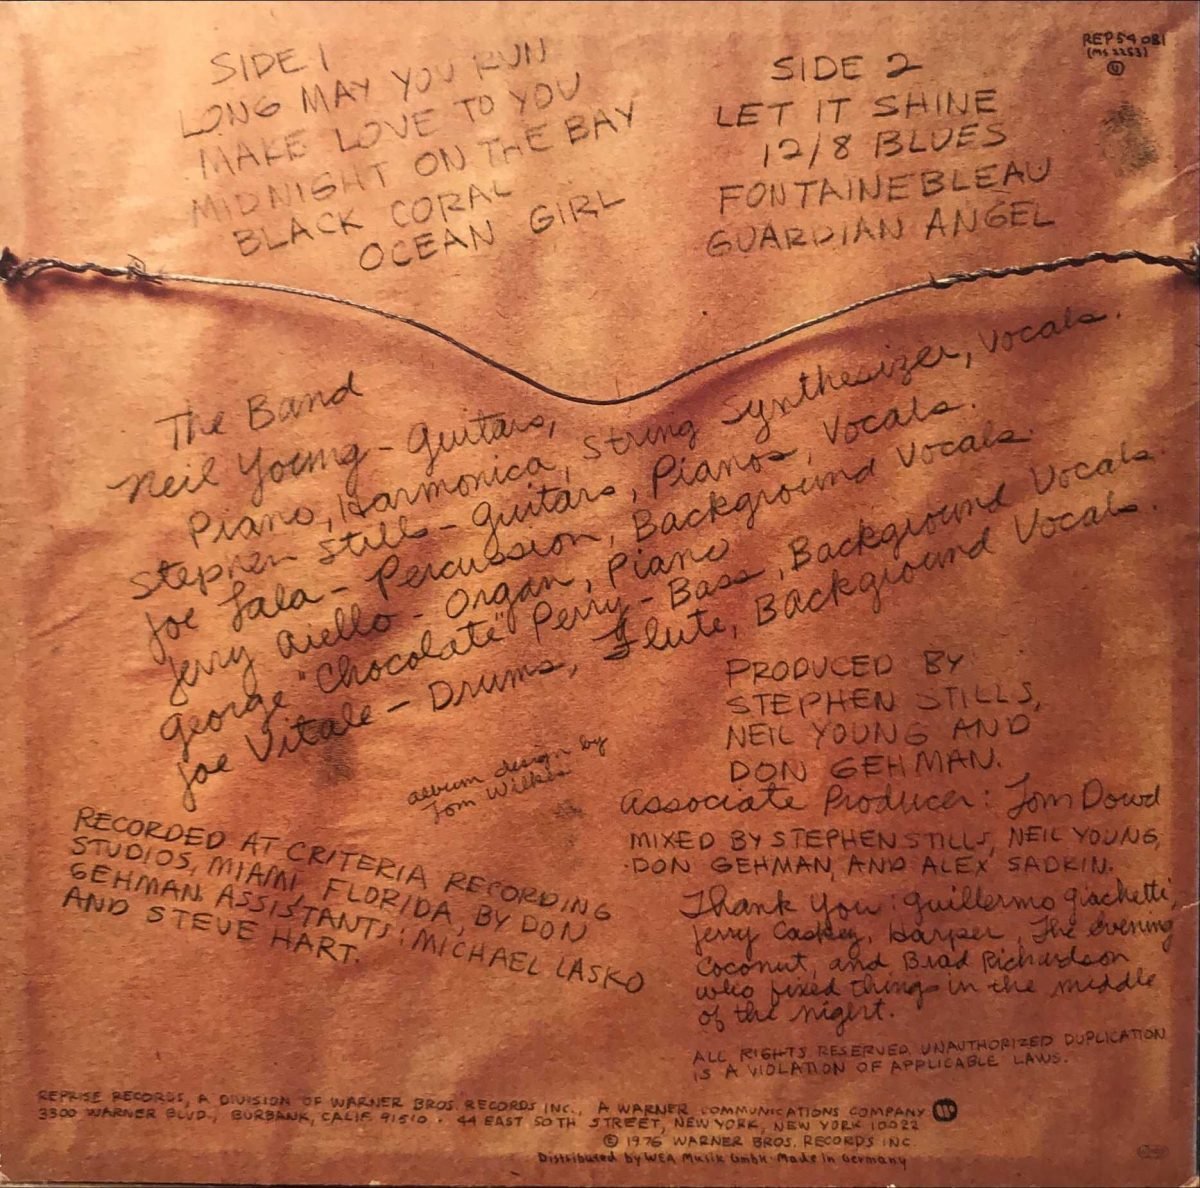 SIDE 1
LONG MAY YOU RUN
MAKE LOVE TO YOU
MIDNIGHT ON THE BAY
BLACK CORAL
OCEAN GIRL
SIDE 2
LET IT SHINE
12/8 BLUES
FONTAINEBLEAU
GUARDIAN ANGEL
REP 54 081
(MS 2253)
The Band
Neil Young - Guitars,
Piano, Harmonica, String Synthesizer, Vocals.
Stephen Stills - Guitars, Pianos, Vocals.
Joe Lala - Percussion, Background Vocals.
Jerry Aiello - Organ, Piano
George "Chocolate" Perry - Bass, Background Vocals.
Joe Vitale - Drums, Flute, Background Vocals.
album design by
Tom Wilkes
PRODUCED BY
STEPHEN STILLS,
NEIL YOUNG AND
DON GEHMAN.
Associate Producer: Tom Dowd
MIXED BY STEPHEN STILLS, NEIL YOUNG,
DON GEHMAN, AND ALEX SADKIN.
RECORDED AT CRITERIA RECORDING
STUDIOS, MIAMI, FLORIDA, BY DON
GEHMAN. ASSISTANTS: MICHAEL LASKO
AND STEVE HART.
Thank You: Guillermo Giachetti,
Jerry Caskey, Harper, The Evening
Coconut, and Brad Richardson
who fixed things in the middle
of the night.
ALL RIGHTS RESERVED. UNAUTHORIZED DUPLICATION
IS A VIOLATION OF APPLICABLE LAWS.
REPRISE RECORDS, A DIVISION OF WARNER BROS. RECORDS INC., A WARNER COMMUNICATIONS COMPANY
3300 WARNER BLVD., BURBANK, CALIF. 91510 · 44 EAST 50TH STREET, NEW YORK, NEW YORK 10022
© 1976 WARNER BROS. RECORDS INC.
Distributed by WEA Musik GmbH · Made in Germany